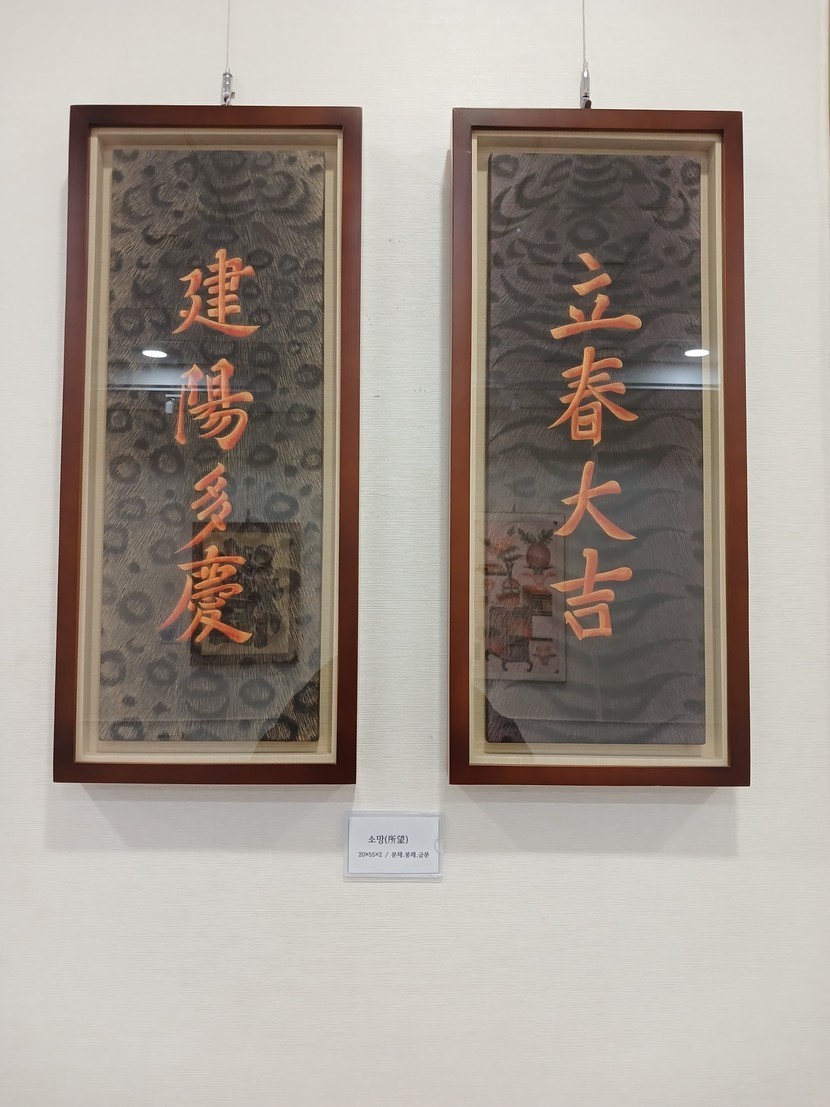 立春大吉
建陽多慶
소망(所望)
20×55×2 / 분채.봉채.금분